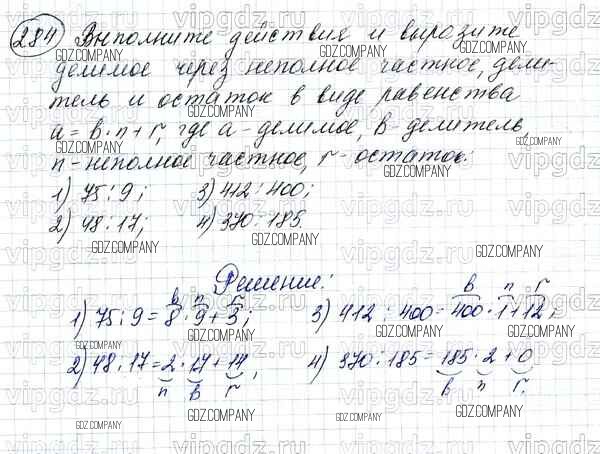 284 Выполните действия и выразите
делимое через неполное частное, дели-
тель и остаток в виде равенства
a = b · n + r, где a - делимое, b - делитель,
n - неполное частное, r - остаток:
1) 75 : 9; 3) 412 : 400;
2) 48 : 17; 4) 370 : 185.
Решение:
b n r b n r
1) 75 : 9 = 8 · 9 + 3; 3) 412 : 400 = 400 · 1 + 12;
2) 48 : 17 = 2 · 17 + 14, 4) 370 : 185 = 185 · 2 + 0
n b r b n r.
vipgdz.ru
GDZ.COMPANY